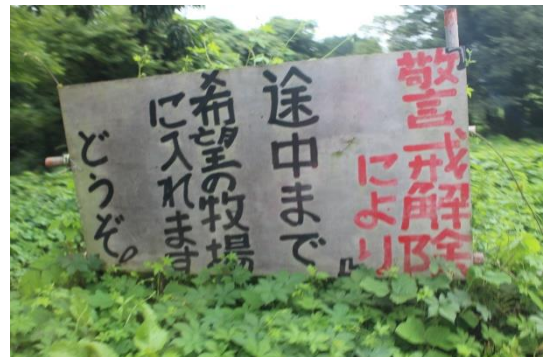 警戒解除
により』
途中まで
×希望の牧場
に入れます
どうぞ。